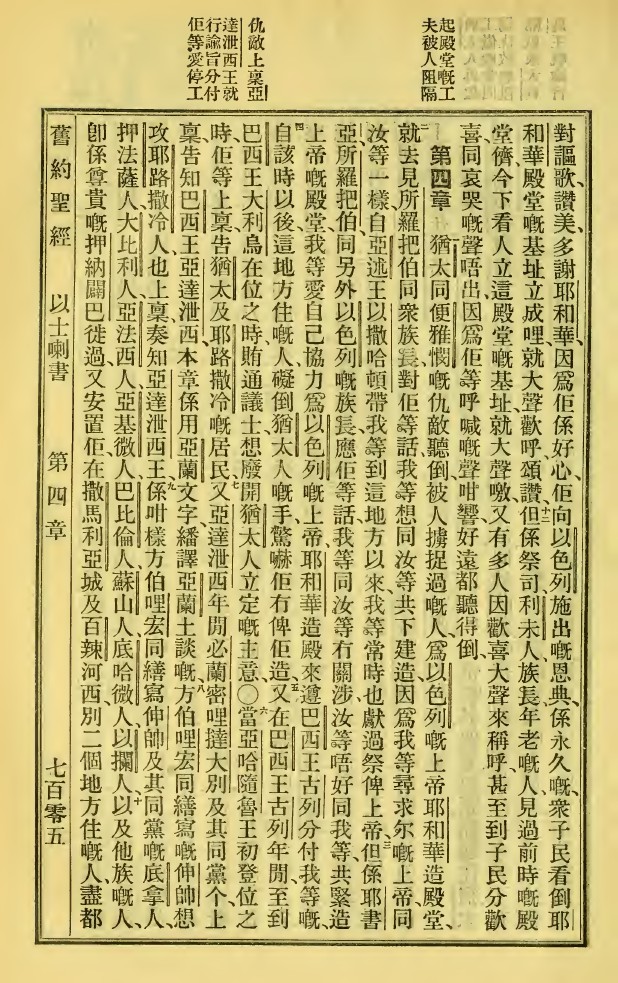 起殿堂嘅工
夫被人阻隔
仇敵上稟亞
達泄西王就
行諭旨分付
佢等愛停工
對謳歌讚美、多謝耶和華、因爲佢係好心、佢向以色列施出嘅恩典、係永久嘅、衆子民看倒耶
和華殿堂嘅基址立成哩、就大聲歡呼、頌讚、十二但係祭司、利未人、族長、年老嘅人、見過前時嘅殿
堂、儕今下看人立這殿堂嘅基址、就大聲噭、又有多人因歡喜大聲來稱呼、甚至到子民分歡
喜同哀哭嘅聲唔出、因爲佢等呼喊嘅聲咁響、好遠都聽得倒、
第四章 一猶太同便雅憫嘅仇敵聽倒、被人擄捉過嘅人、爲以色列嘅上帝耶和華造殿堂、
二就去見所羅把伯同衆族長、對佢等話、我等想同汝等共下建造、因爲我等尋求尔嘅上帝、同
汝等一樣、自亞述王以撒哈頓帶我等到這地方以來、我等常時也獻過祭俾上帝、三但係耶書
亞、所羅把伯、同另外以色列嘅族長應佢等話、我等同汝等冇關涉、汝等唔好同我等共緊造
上帝嘅殿堂、我等愛自己協力爲以色列嘅上帝耶和華造殿、來遵巴西王古列分付我等嘅、
四自該時以後、這地方住嘅人、礙倒猶太人嘅手、驚嚇佢冇俾佢造、五又在巴西王古列年間、至到
巴西王大利烏在位之時、賄通議士、想廢開猶太人立定嘅主意、〇六當亞哈隨魯王初登位之
時、佢等上稟告猶太及耶路撒冷嘅居民、七又亞達泄西年間、必蘭、密哩撻、大別、及其同黨个、上
稟告知巴西王亞達泄西、本章係用亞蘭文字、繙譯亞蘭土談嘅、八方伯哩宏、同繕寫嘅伸帥、想
攻耶路撒冷人、也上稟奏知亞達泄西王、係咁樣、九方伯哩宏、同繕寫伸帥、及其同黨嘅底拿人、
押法薩人、大比利人、亞法西人、亞基微人、巴比倫人、蘇山人、底哈微人、以攔人、十以及他族嘅人、
卽係尊貴嘅押納闢巴徙過、又安置佢在撒馬利亞城、及百辣河西、別二個地方住嘅人、盡都
舊約聖經 以士喇書 第四章 七百零五